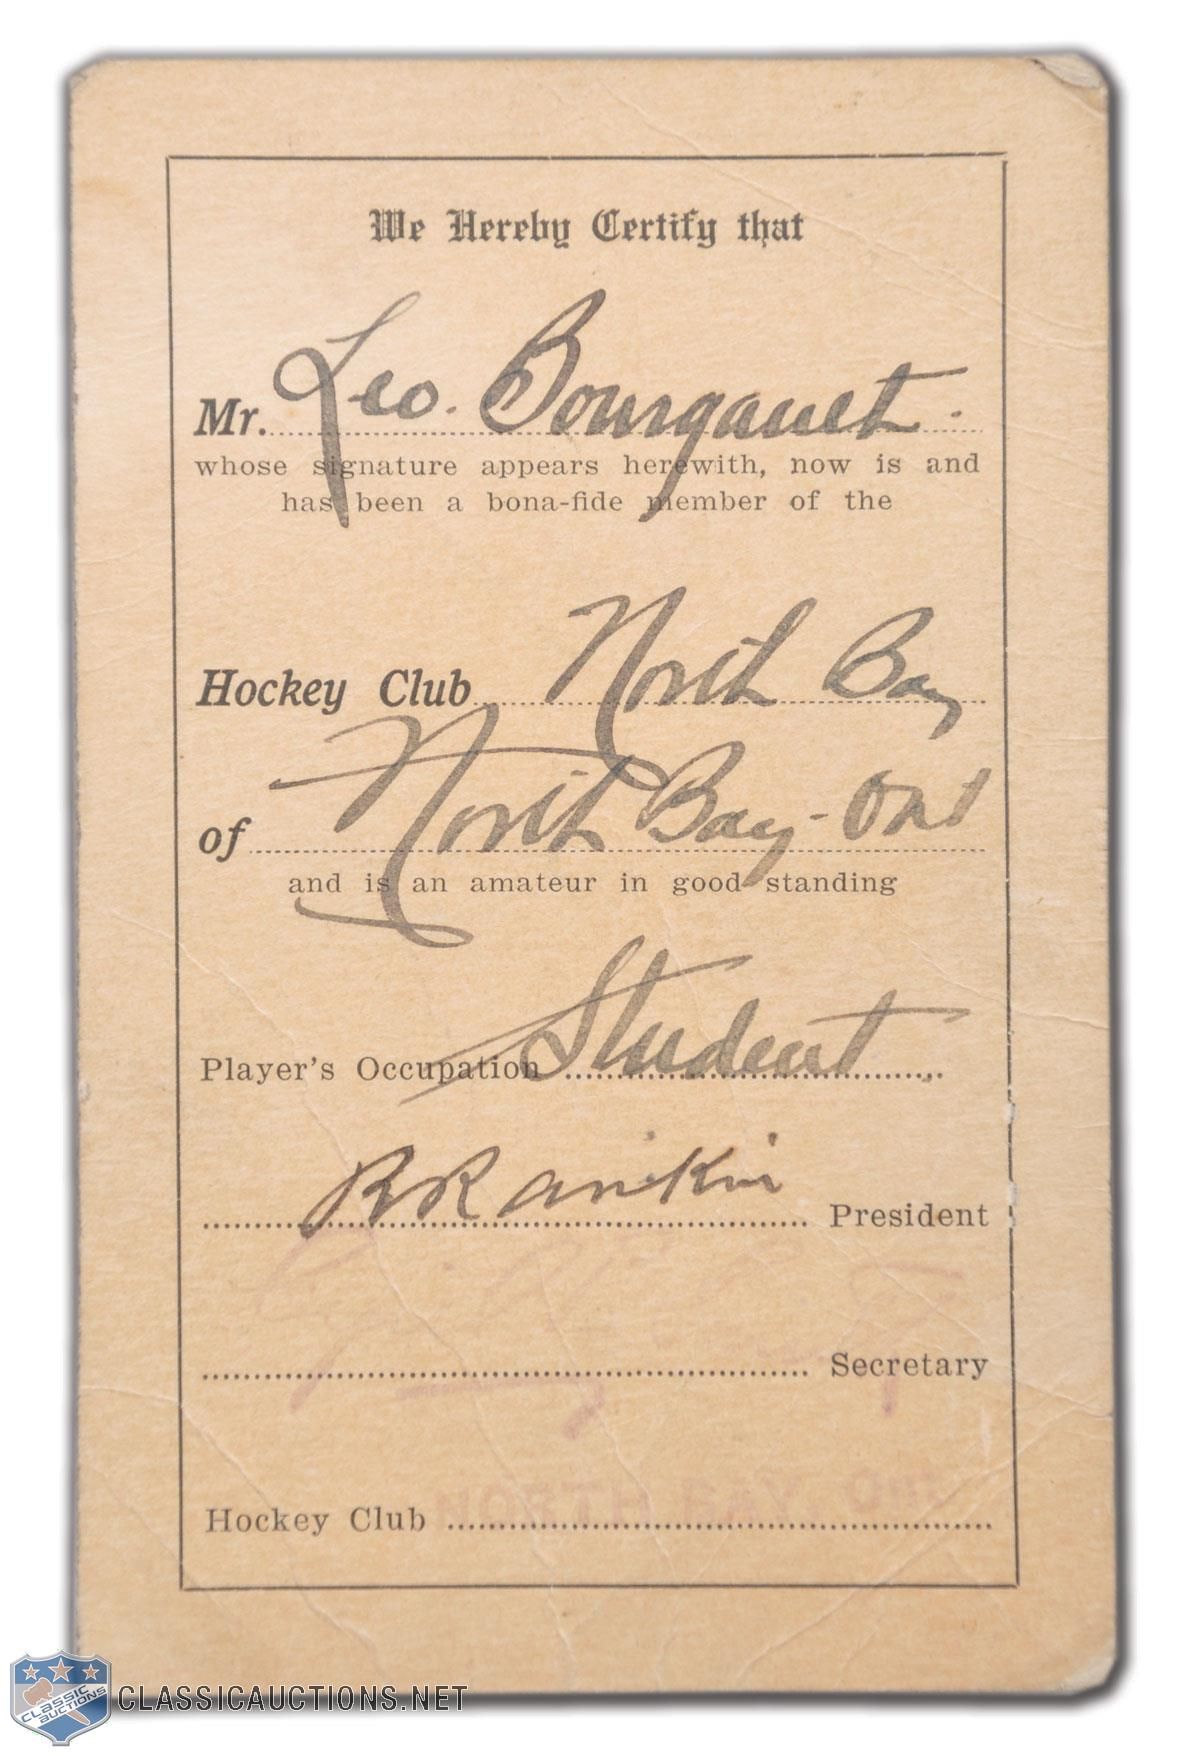 We Hereby Certify that
Mr. Leo. Bourgault.
whose signature appears herewith, now is and
has been a bona-fide member of the
Hockey Club North Bay
of North Bay - Ont
and is an amateur in good standing
Player's Occupation Student
R Rankin President
Secretary
NORTH BAY ONT
Hockey Club
CLASSIC AUCTIONS
CLASSICAUCTIONS.NET